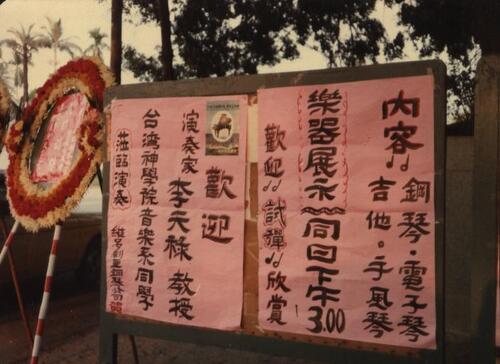 內容
鋼琴・電子琴
吉他・手風琴
樂器展示
同日下午3.00
歡迎試彈欣賞
歡迎
演奏家 李天祿 教授
台湾神學院音樂系同學
蒞臨演奏